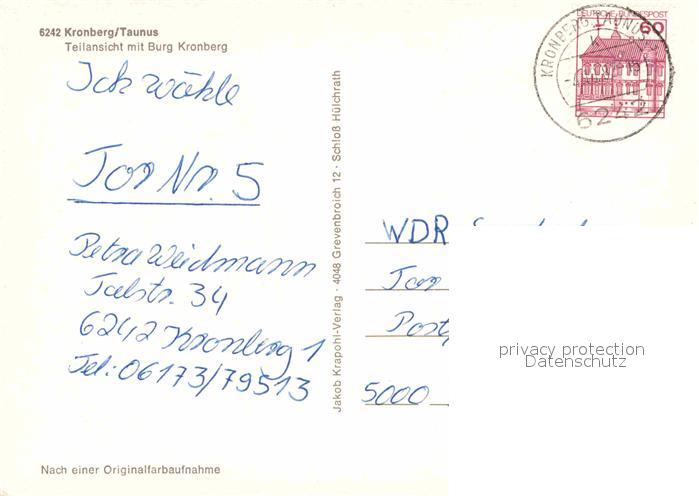 6242 Kronberg/Taunus
Teilansicht mit Burg Kronberg
Ich wähle
Tor Nr. 5
Petra Weidmann
Talstr. 34
6242 Kronberg 1
Tel.: 06173/79513
Nach einer Originalfarbaufnahme
Jakob Krapohl-Verlag · 4048 Grevenbroich 12 · Schloß Hülchrath
DEUTSCHE BUNDESPOST
60
KRONBERG, TAUNUS
6242
WDR
Tor
Post
5000
privacy protection
Datenschutz